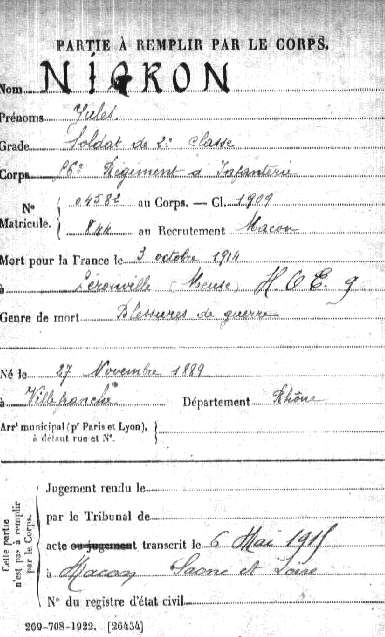 PARTIE À REMPLIR PAR LE CORPS.
Nom NIGRON
Prénoms Jules
Grade Soldat de 2e classe
Corps 56e Régiment d'Infanterie
N° Matricule. { 04582 au Corps. — Cl. 1909
844 au Recrutement Macon
Mort pour la France le 3 octobre 1914
à Lérouville (Meuse) H.O.E. 9
Genre de mort Blessures de guerre
Né le 27 Novembre 1889
à Villefranche Département Rhône
Arrt municipal (pr Paris et Lyon), à défaut rue et N°. }
Cette partie n'est pas à remplir par le Corps.
Jugement rendu le
par le Tribunal de
acte ou jugement transcrit le 6 Mai 1915
à Macon Saone et Loire
N° du registre d'état civil
269-708-1922. [26434]